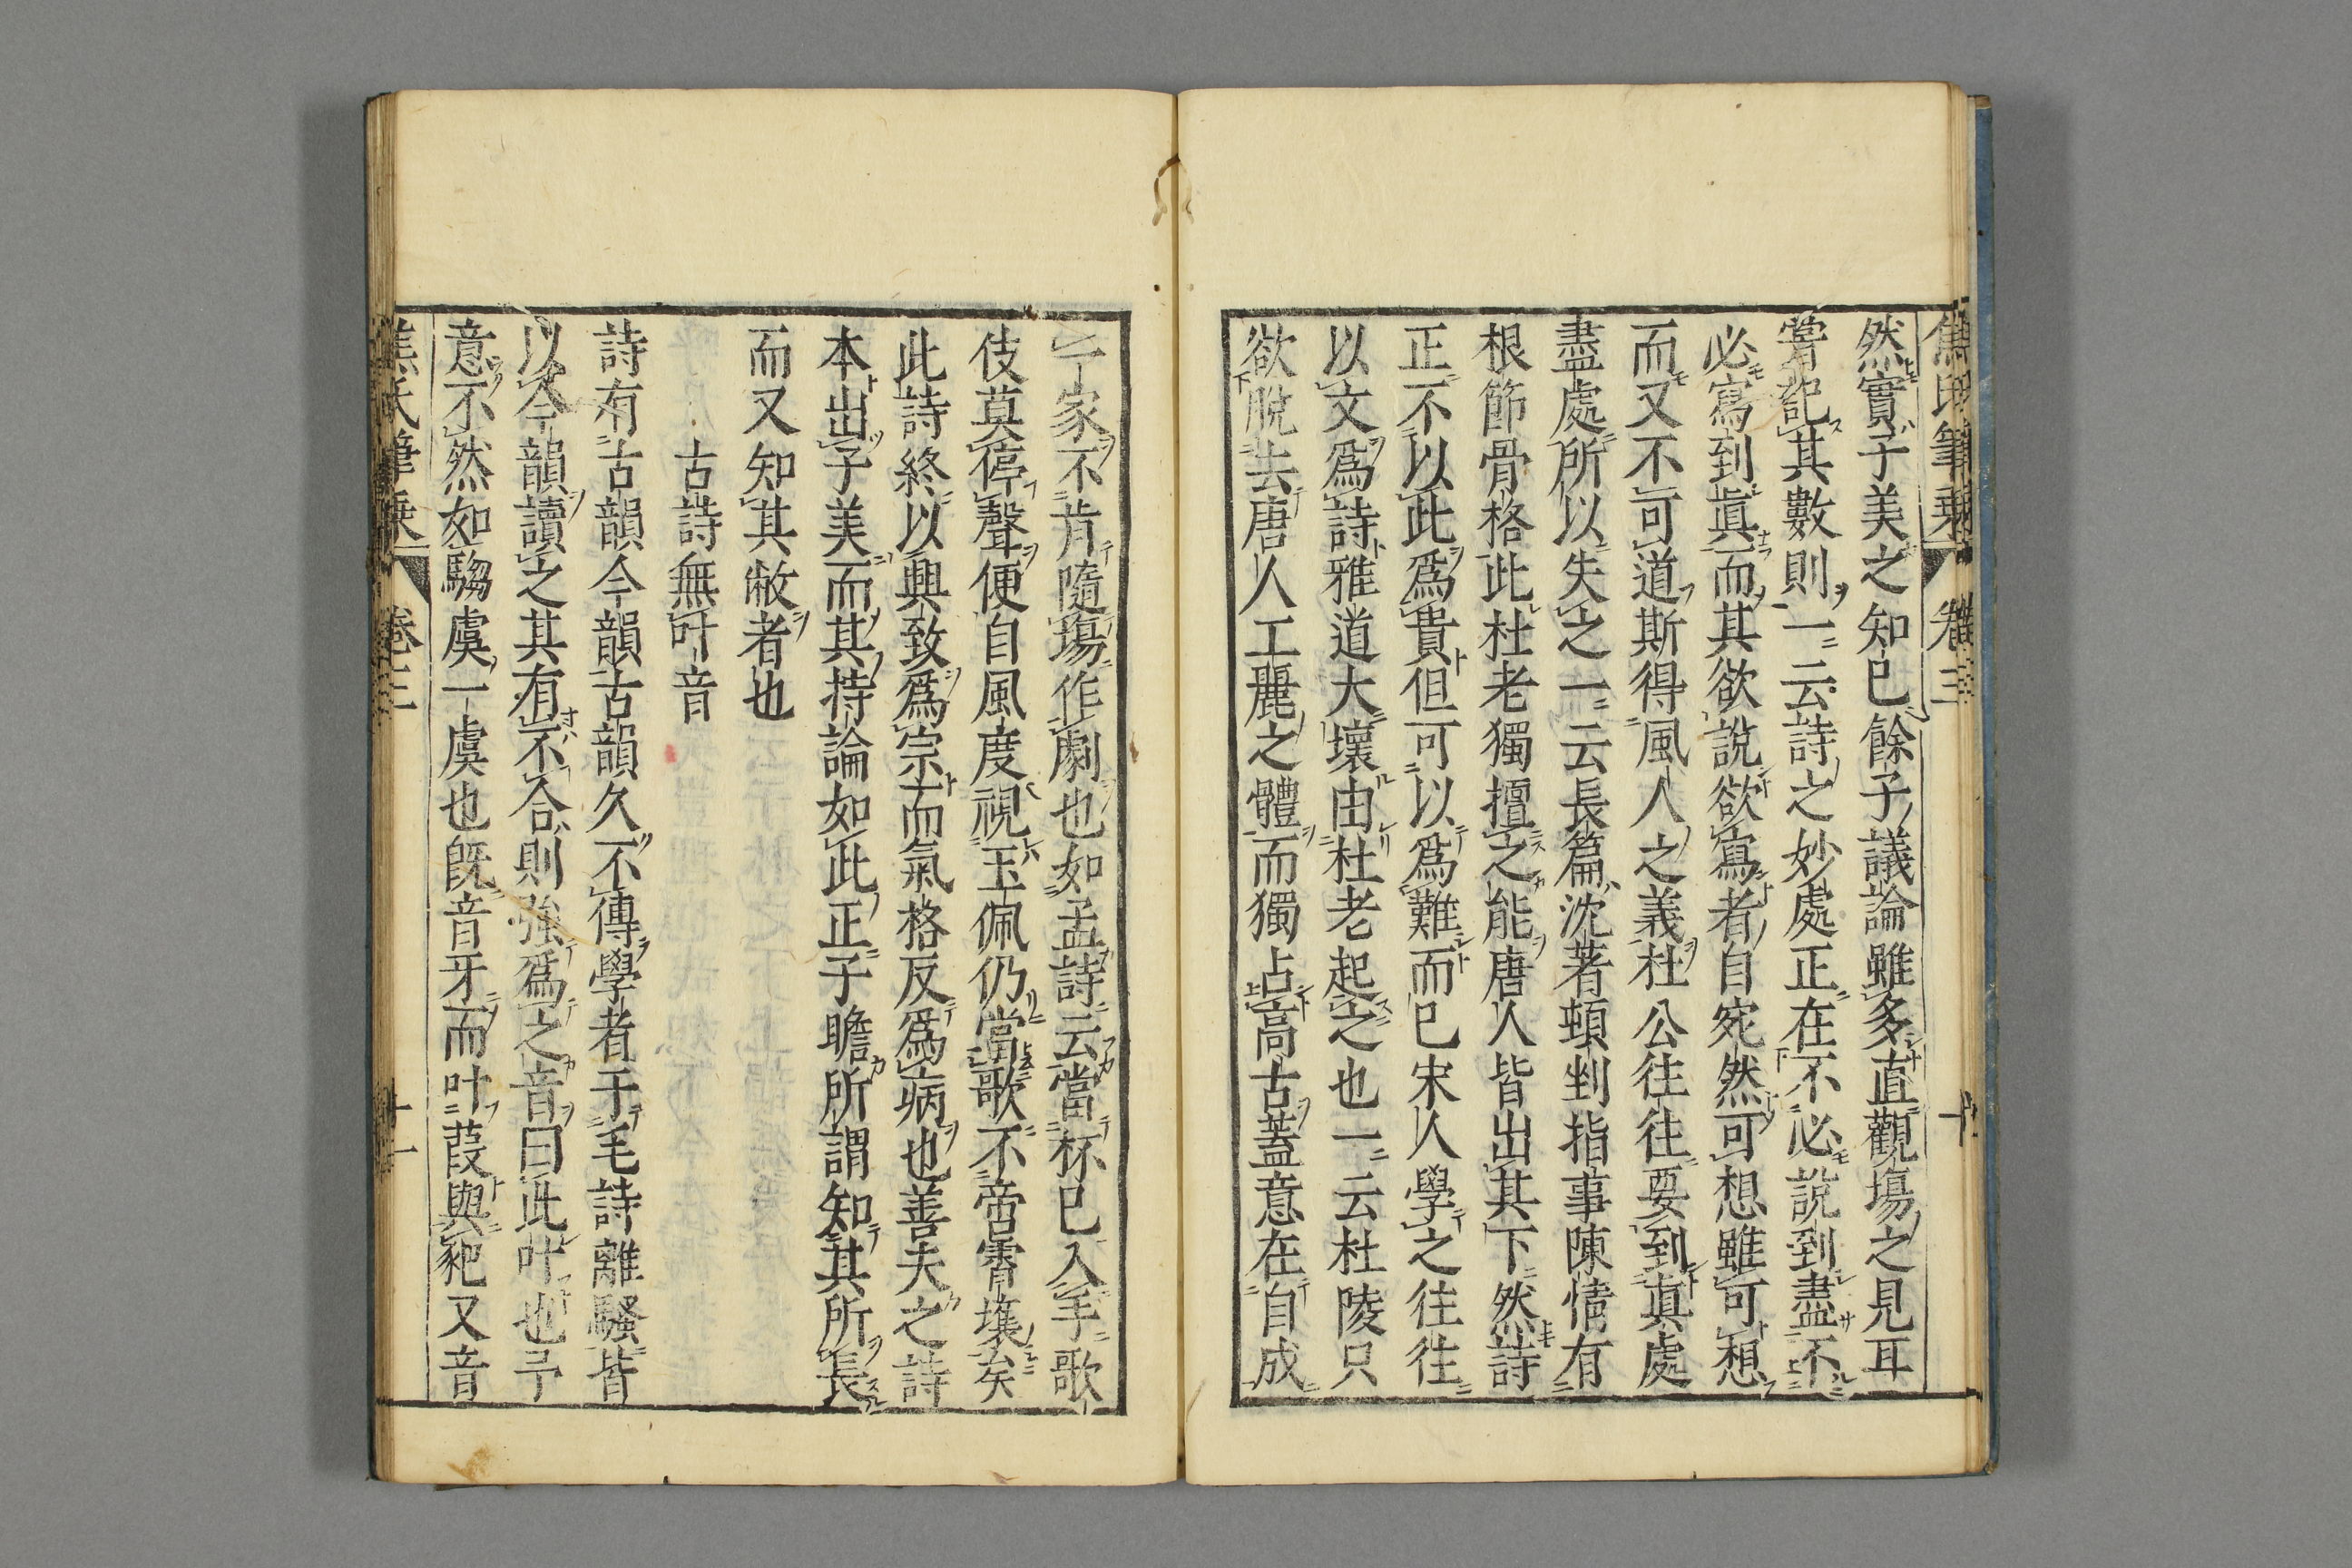 焦氏筆乘 卷三 十
然實子美之知己餘子議論雖多直觀塲之見耳
嘗記其數則一云詩之妙處正在不必說到盡不
必寫到眞而其欲說欲寫者自宛然可想雖可想
而又不可道斯得風人之義杜公往往要到眞處
盡處所以失之一云長篇沈著頓剉指事陳情有
根節骨格此杜老獨擅之能唐人皆出其下然詩
正不以此爲貴但可以爲難而已宋人學之往往
以文爲詩雅道大壞由杜老起之也一云杜陵只
欲脫去唐人工麗之體而獨占高古蓋意在自成
一家不肯隨塲作劇也如孟詩云當杯已入手歌
伎莫停聲便自風度視玉佩仍當歌不啻霄壤矣
此詩終以興致爲宗而氣格反爲病也善夫之詩
本出子美而其持論如此正子瞻所謂知其所長
而又知其敝者也
古詩無叶音
詩有古韻今韻古韻久不傳學者于毛詩離騷皆
以今韻讀之其有不合則強爲之音曰此叶也予
意不然如騶虞一虞也旣音牙而叶葭與豝又音
焦氏筆乘 卷三 十一